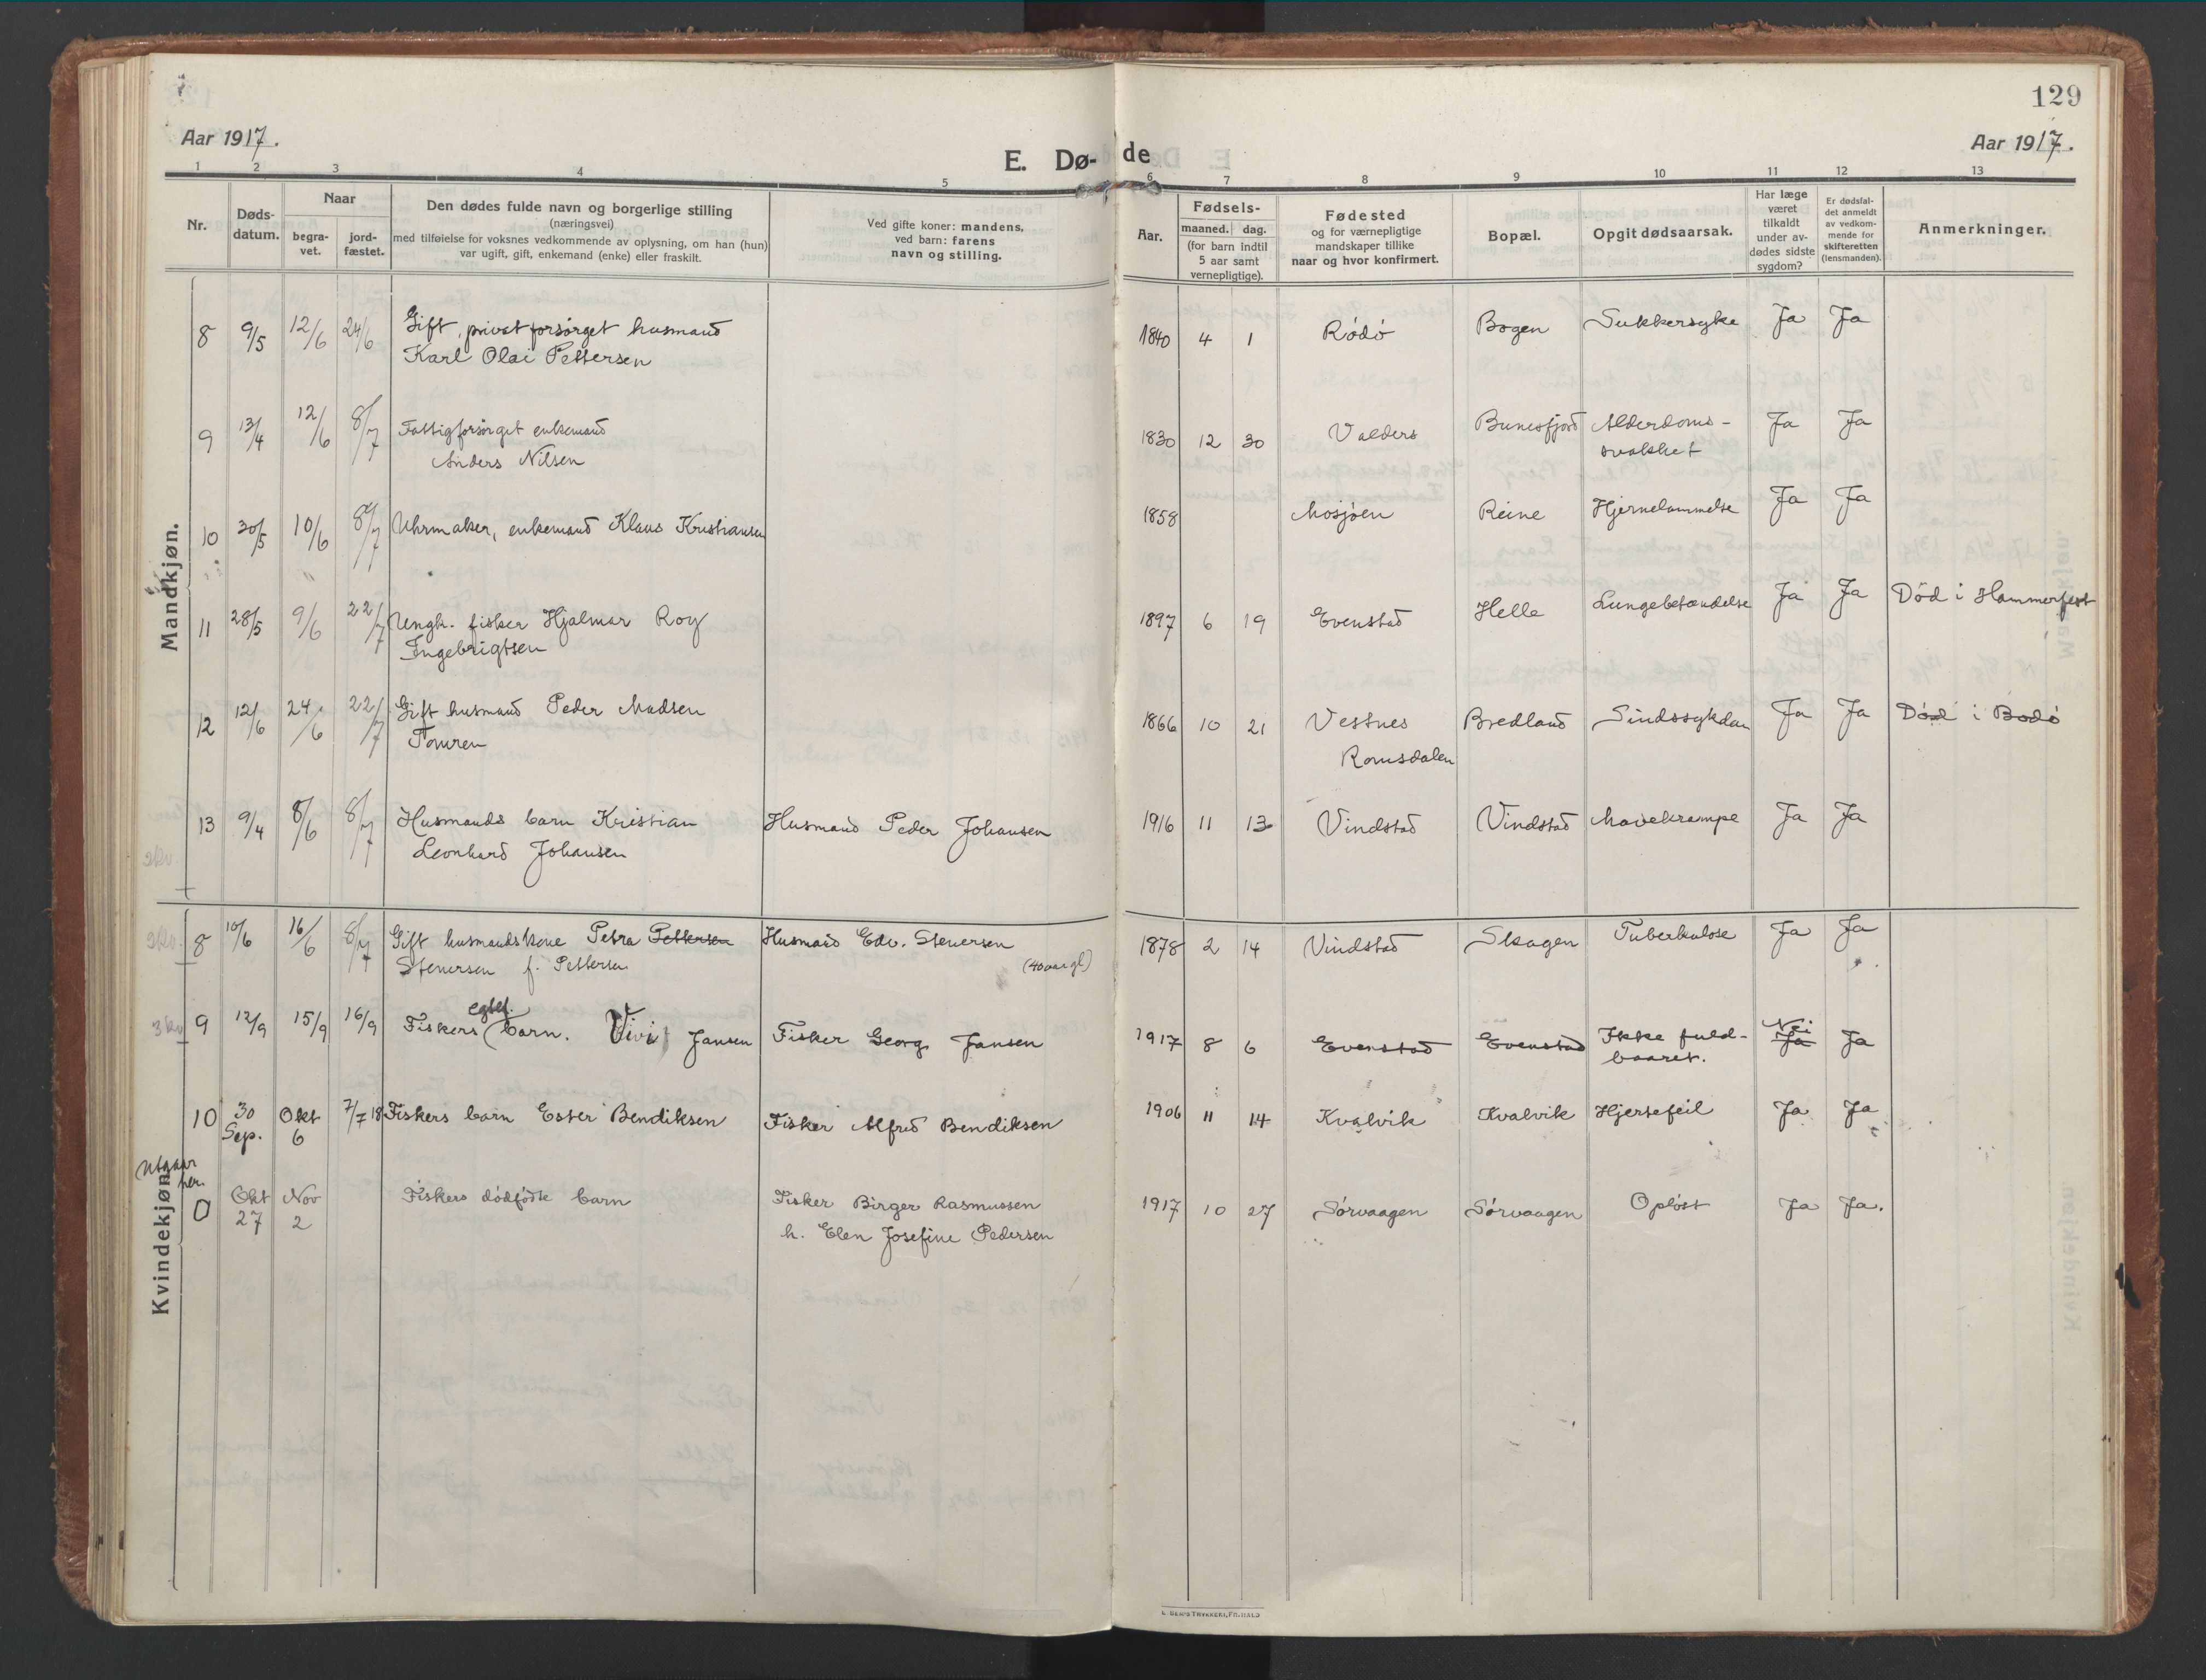 129
Aar 1917.
E. Dø-de
Aar 1917.
1 2 3 4 5 6 7 8 9 10 11 12 13
Nr.
Døds-
datum.
Naar
begra-
vet.
jord-
fæstet.
Den dødes fulde navn og borgerlige stilling
(næringsvei)
med tilføielse for voksnes vedkommende av oplysning, om han (hun)
var ugift, gift, enkemand (enke) eller fraskilt.
Ved gifte koner: mandens,
ved barn: farens
navn og stilling.
Aar.
Fødsels-
maaned. dag.
(for barn indtil
5 aar samt
vernepligtige).
Fødested
og for værnepligtige
mandskaper tillike
naar og hvor konfirmert.
Bopæl.
Opgit dødsaarsak.
Har læge
været
tilkaldt
under av-
dødes sidste
sygdom?
Er dødsfal-
det anmeldt
av vedkom-
mende for
skifteretten
(lensmanden).
Anmerkninger.
Mandkjøn.
8 9/5 12/6 24/6 Gift, privat forsørget husmand 1840 4 1 Rødø Bogen Sukkersyke Ja Ja
Karl Olai Pettersen
9 13/4 12/6 8/7 Fattigforsørget enkemand 1830 12 30 Valders Bunesfjord Alderdoms- Ja Ja
Anders Nilsen svakhet
10 30/5 10/6 8/7 Uhrmaker, enkemand Klaus Kristiansen 1858 Mosjøen Reine Hjernelammelse Ja Ja
11 28/5 9/6 22/7 Ungk. fisker Hjalmar Roy 1897 6 19 Evenstad Helle Lungebetændelse Ja Ja Død i Hammerfest
Ingebrigtsen
12 12/6 24/6 22/7 Gift husmand Peder Madsen 1866 10 21 Vestnes Bredland Sindssykdom Ja Ja Død i Bodø
Tomren Romsdalen
13 9/4 8/6 8/7 Husmands barn Kristian Husmand Peder Johansen 1916 11 13 Vindstad Vindstad Mavekrampe Ja Ja
Leonhard Johansen
Kvindekjøn.
8 10/6 16/6 8/7 Gift husmandskone Petra Pettersen Husmand Edv. Stenersen 1878 2 14 Vindstad Skagen Tuberkulose Ja Ja
Stenersen f. Pettersen (40 aar gl)
egtef.
3 kv 9 12/9 15/9 16/9 Fiskers barn. Vivi Jansen Fisker Georg Jansen 1917 8 6 Evenstad Evenstad Ikke fuld- Ja Nei Ja
baaret.
10 30 Sep. Okt 6 7/7 18 Fiskers barn Ester Bendiksen Fisker Alfred Bendiksen 1906 11 14 Kvalvik Kvalvik Hjertefeil Ja Ja
Utgaar
her.
0 Okt 27 Nov 2 Fiskers dødfødte barn Fisker Birger Rasmussen 1917 10 27 Sørvaagen Sørvaagen Opløst Ja Ja.
h. Elen Josefine Pedersen